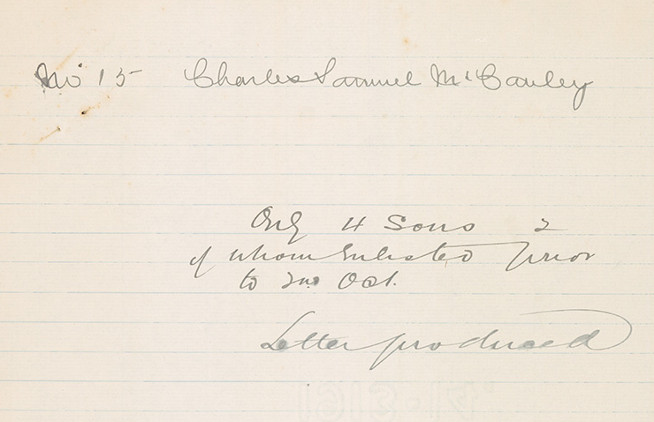 No 15 Charles Samuel McCauley
Only 4 Sons 2
of whom Enlisted prior
to 2nd Oct.
Letter produced